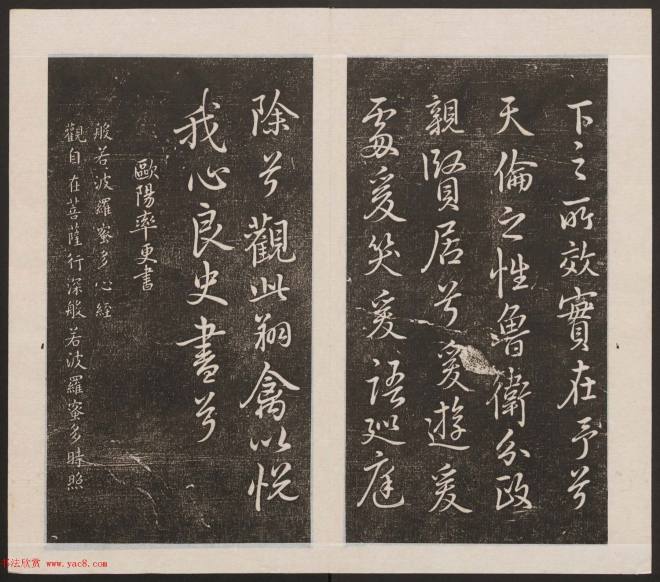 下之所效實在予兮
天倫之性魯衛分政
親賢居兮爰遊爰
處爰笑爰語巡庭
除兮觀此翔禽以悅
我心良史書兮
歐陽率更書
般若波羅蜜多心經
觀自在菩薩行深般若波羅蜜多時照
书法欣赏 www.yac8.com